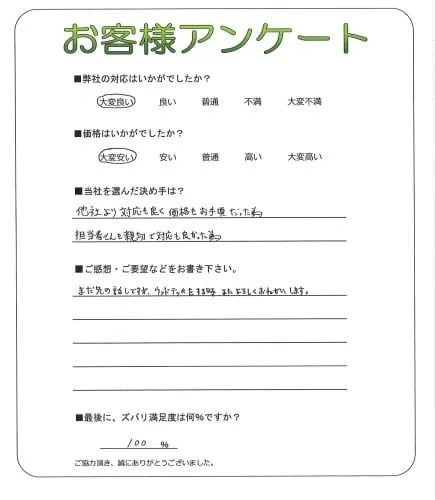 お客様アンケート
■弊社の対応はいかがでしたか？
大変良い 良い 普通 不満 大変不満
■価格はいかがでしたか？
大変安い 安い 普通 高い 大変高い
■当社を選んだ決め手は？
他社より対応も良く価格もお手頃だった為
担当者さんも親切で対応も良かった為
■ご感想・ご要望などをお書き下さい。
まだ先の話しですが、ウッドデッキをする時またよろしくおねがいします。
■最後に、ズバリ満足度は何%ですか？
100 %
ご協力頂き、誠にありがとうございました。